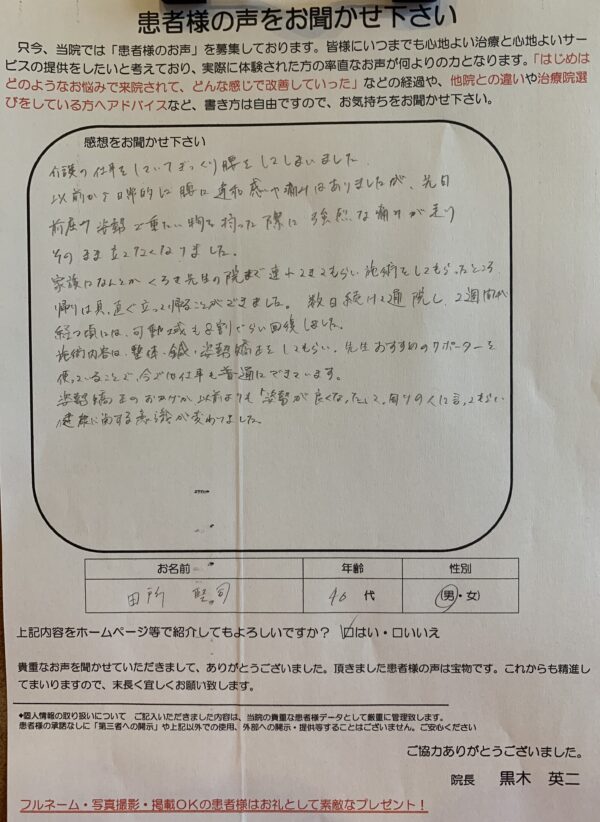 患者様の声をお聞かせ下さい
只今、当院では「患者様のお声」を募集しております。皆様にいつまでも心地よい治療と心地よいサー
ビスの提供をしたいと考えており、実際に体験された方の率直なお声が何よりの力となります。「はじめは
どのようなお悩みで来院されて、どんな感じで改善していった」などの経過や、他院との違いや治療院選
びをしている方へアドバイスなど、書き方は自由ですので、お気持ちをお聞かせ下さい。
感想をお聞かせ下さい
介護の仕事をしていてぎっくり腰をしてしまいました。
以前から日常的に腰に違和感や痛みはありましたが、先日
前屈の姿勢で重たい物を持った際に強烈な痛みが走り
そのまま立てなくなりました。
家族になんとかくろき先生の院まで連れてきてもらい施術をしてもらったところ
帰りは真直ぐ立って帰ることができました。数日続けて通院し、2週間が
経つ頃には、可動域も8割ぐらい回復しました。
施術内容は、整体・鍼・姿勢矯正をしてもらい、先生おすすめのサポーターを
使っていることで、今では仕事も普通にできています。
姿勢矯正のおかげか以前よりも「姿勢が良くなった」って、周りの人に言ってもらい
健康に関する意識が変わりました。
お名前 年齢 性別
田所 40 代 (男・女)
上記内容をホームページ等で紹介してもよろしいですか? ☑はい・□いいえ
貴重なお声を聞かせていただきまして、ありがとうございました。頂きました患者様の声は宝物です。これからも精進し
てまいりますので、末長く宜しくお願い致します。
◆個人情報の取り扱いについて ご記入いただきました内容は、当院の貴重な患者様データとして厳重に管理致します。
患者様の承諾なしに「第三者への開示」や上記以外での使用、外部への開示・提供等することはございません。ご安心ください
ご協力ありがとうございました。
院長 黒木 英二
フルネーム・写真撮影・掲載OKの患者様はお礼として素敵なプレゼント!